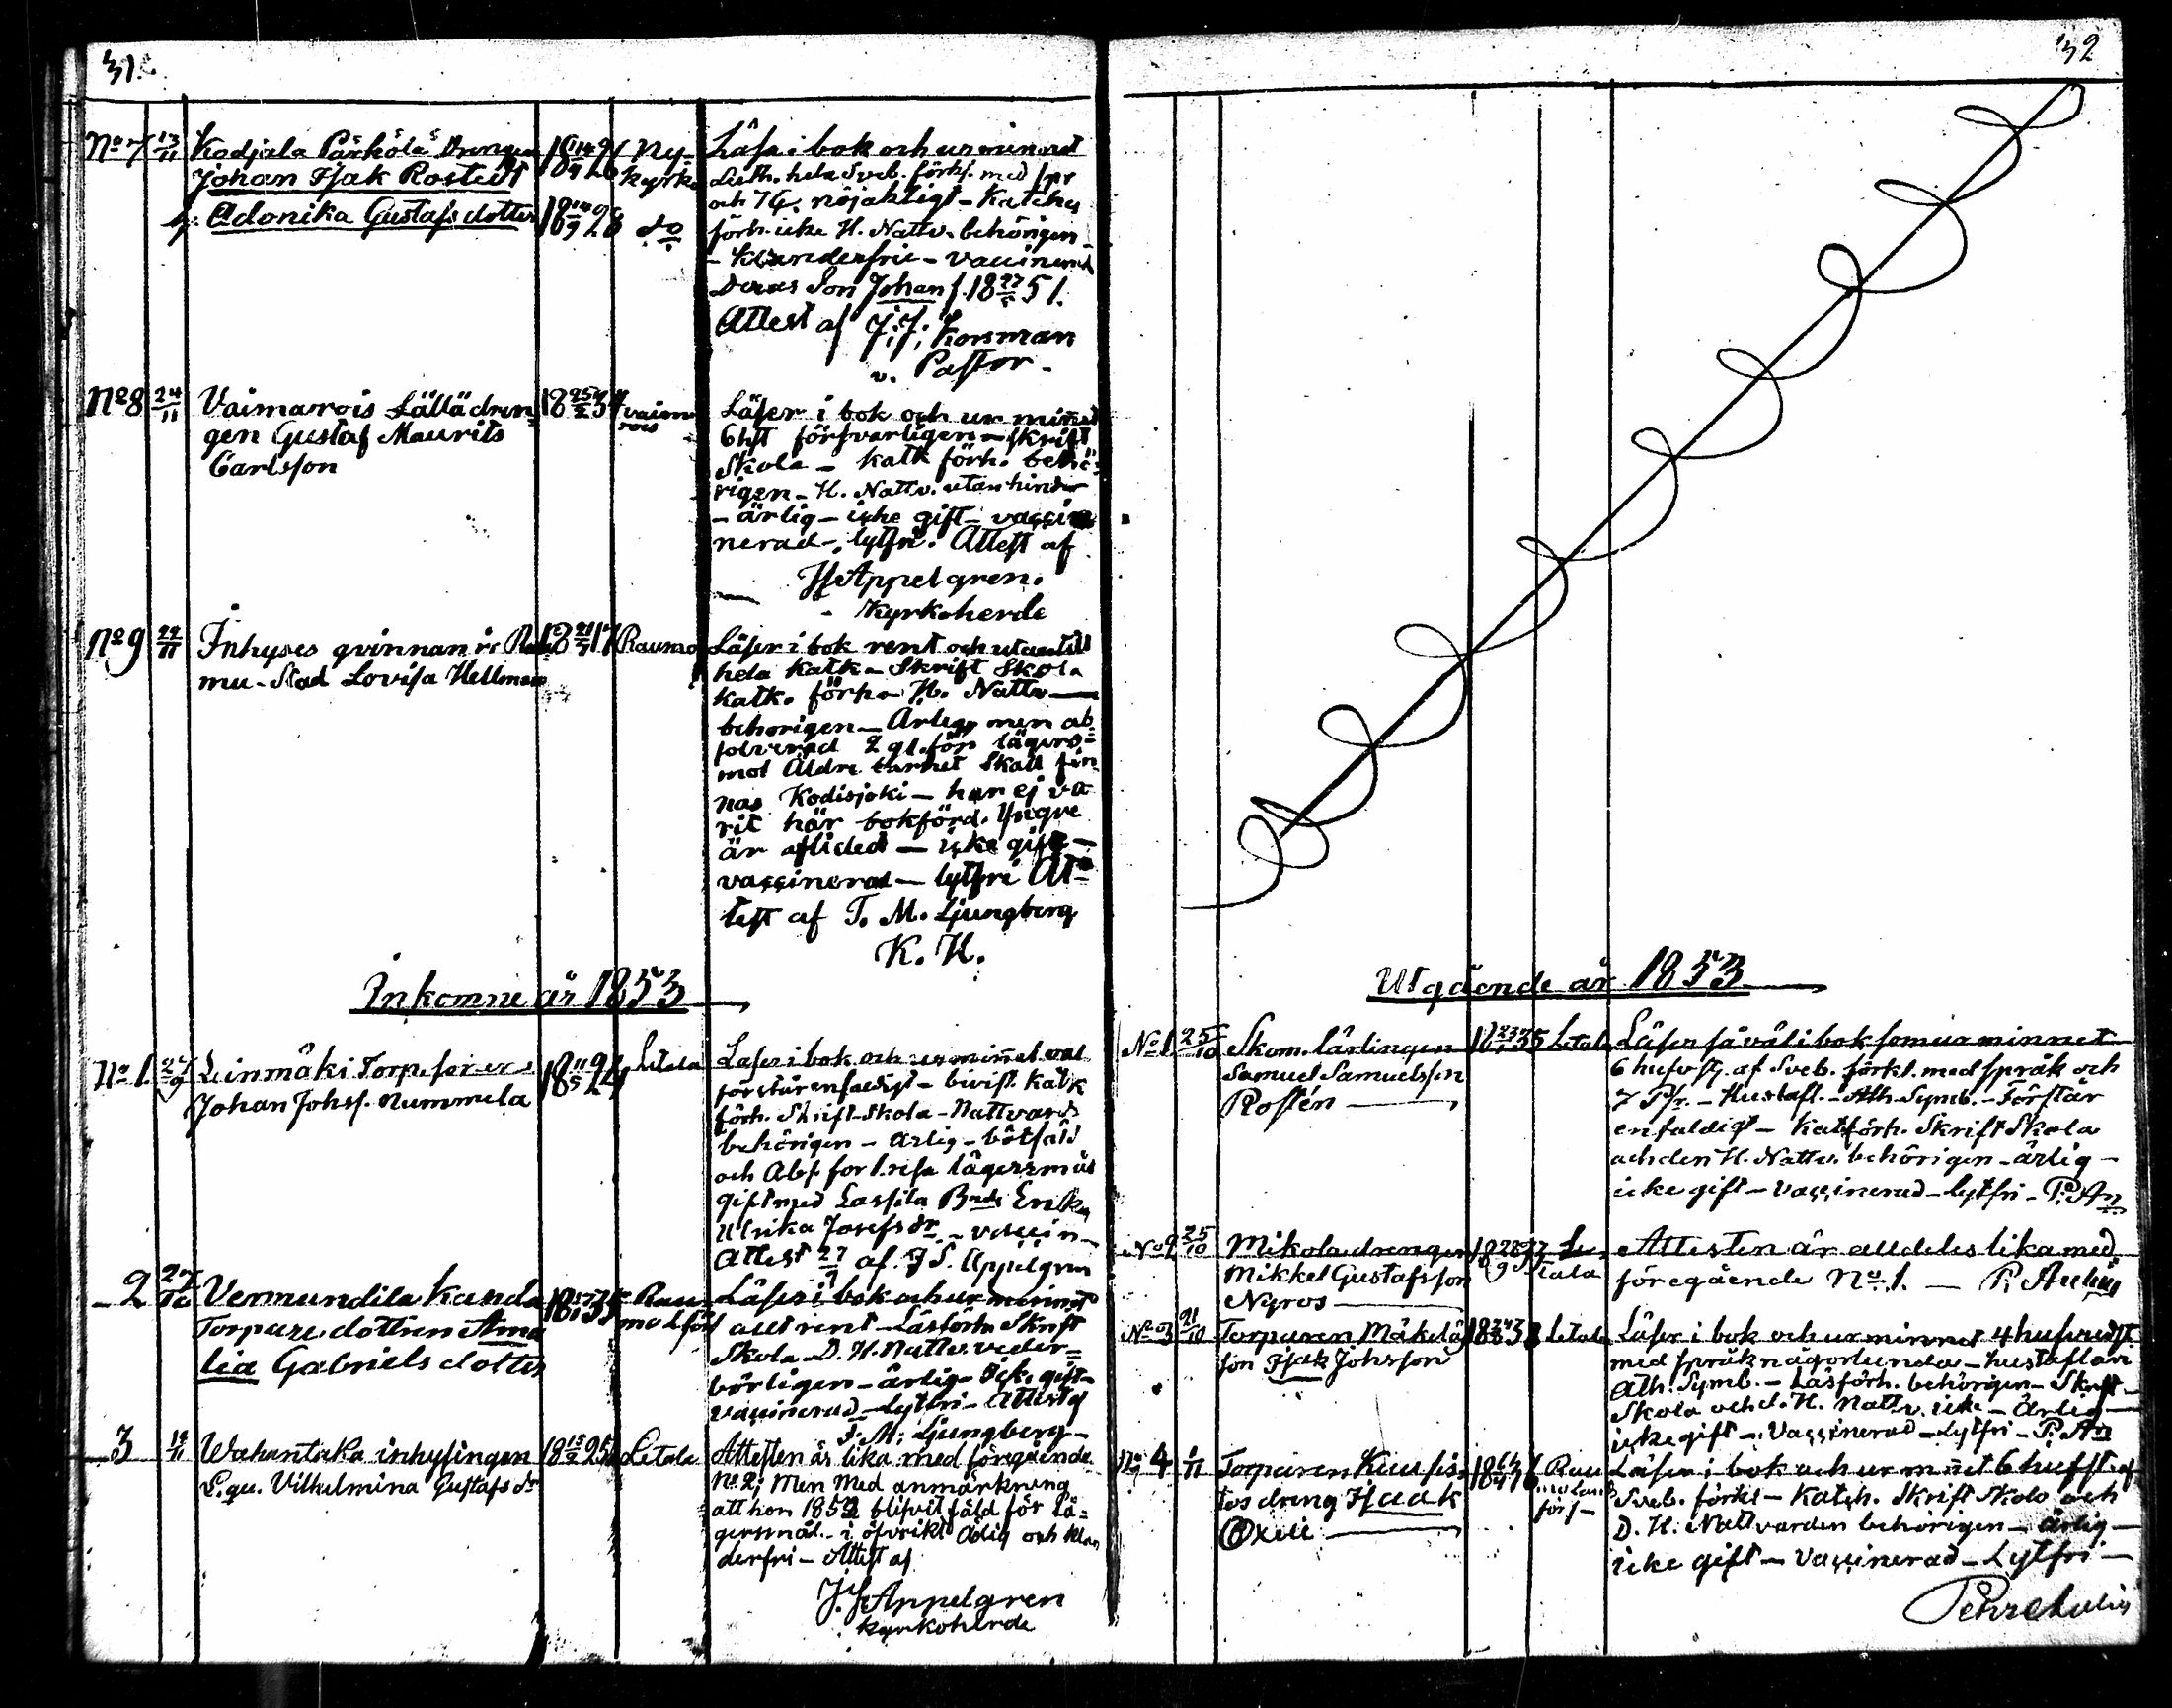 31.
No 7 13/11 Kodjala Pärkölä Drengen 18 14/9 26 Ny-
Johan Isak Rostedt kyrko
h. Adonika Gustafsdotter 18 14/9 28 do
Läser i bok och ur minnet
Luth. hela Sveb. förkl. med spr
och 74. nöjaktigt - Katches
förh. icke H. Nattv. behörigen
- klanderfrie - vaccinerad
Deras Son Johan f. 18 27/5 51.
Attest af J. J. Korsman
v. Pastor -
No 8 24/11 Vaimarois Lällä dren- 18 25/2 34 vaima
gen Gustaf Maurits rois
Carlsson
Läser i bok och ur minet
6 hst försvarligen - skrift
Skola - katk förh. behö-
rigen - H. Nattv. utan hinder
- ärlig - icke gift - vacci
nerad - lytfri. Attest af
Appelgren.
Kyrkoherde
No 9 22/11 Inhyses qvinnan i Rau 18 17 Raumo
mu. Stad Lovisa Hellman
Läser i bok rent och utantill
hela katk - Skrift Skola
katk. förh - H. Nattv -
behörigen - Ärlig, men ab
solverad 2 gl. för lägers-
mol Äldre barnet Skall fin
nas Kodisjoki - har ej va
rit här bokförd. Yngre
är aflidet - icke gift -
vaccinerad - lytfri At-
test af T. M. Ljungberg
K. H.
Inkomne år 1853
No 1. Leinmäki Torp. 18 11/5 24 Letala
Johan Johss. Nummela
Laser i bok och ur minnet val
förstår enfaldigt - bivist. Katk
förh. Skrift-Skola - Nattvard
behörigen - ärlig - bötfäld
och Abs. for 1. resa lägersmål
gift med Lassila Erika
Ulrika Josefs dr - vaccin -
Attest 27/9 af J. S. Appelgren
- 2 Vermundila Kanda 18 35 Rau-
Torpare dottren Ama mo Lförs
lia Gabriels dotter
Läser i bok och ur minnet
allt rent - Läsförh. Skrift
Skola - D. H. Nattv. veder-
börligen - ärlig - Ick. gift -
vaccinerad - lytfri - Attest af
T. M. Ljungberg -
- 3 19/11 Wahantaka inhysingen 18 15/2 25 Letala
L. qv. Vilhelmina Gustafs dr
Attesten är lika med föregående
No 2; Men Med anmärkning
att hon 1852 blifvit fäld för lä-
gersmål - i öfvrikt ärlig och klan
derfri - Attest af
J. S. Appelgren
kyrkoherde
32
Utgående år 1853
No 1 25/10 Skom. lärlingen 18 23/1 35 Letala
Samuel Samuelsson
Rostén
Läser så väl i bok som ur minnet
6 hufvst. af Sveb. förkl. med språk och
7 Psr. - Hustafl. - Ath. Symb. - Förstår
enfaldigt - Katförh. Skrift Skola
och den H. Nattv. behörigen - ärlig -
icke gift - vaccinerad - lytfri - P. An
No 2 25/10 Mikola drengen 18 28/9 Le-
Mikkel Gustafsson tala
Nyros
Attesten är alldeles lika med
föregående No 1. -
No 3 21/10 Torparen Mäkelä 18 Letala
son Isak Johsson
Läser i bok och ur minnet 4 hufvudst.
med språk någorlunda - hustaflan
Ath. Symb. - Läsförh. behörigen - Skrift -
Skola och d. H. Nattv. icke - Ärlig -
icke gift - Vaccinerad - Lytfri - P. An
No 4 1/11 Torparen Kuusis 18 Rau
tos dreng Isaak mo land
Oxeli förs -
Läser i bok och ur minet 6 hufst. af
Sveb. förkl - Katch. Skrift Skola och
D. H. Nattvarden behörigen - ärlig -
icke gift - Vaccinerad - Lytfri -